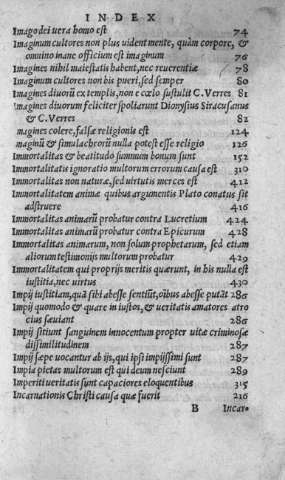 INDEX
Imago dei uera homo est 74
Imaginum cultores non plus uident mente, quàm corpore, &
omnino inane officium est imaginum 76
Imagines nihil maiestatis habent, nec reuerentiæ 78
Imaginum cultores non bis pueri, sed semper 80
Imagines diuorū ex templis, non e cœlo sustulit C. Verres 81
magines diuorum feliciter spoliarunt Dionysius Siracusanus
& C. Verres 82
magines colere, falsæ religionis est 124
maginū & simulachrorū nulla potest esse religio 126
Immortalitas & beatitudo summum bonum sunt 152
Immortalitatis ignoratio multorum errorum causa est 310
Immortalitas non naturæ, sed uirtutis merces est 412
Immortalitatem animæ quibus argumentis Plato conatus sit
adstruere 416
Immortalitas animarū probatur contra Lucretium 424
Immortalitas animarū probatur contra Epicurum 428
Immortalitas animarum, non solum prophetarum, sed etiam
aliorum testimonijs multorum probatur 429
Immortalitatem qui proprijs meritis quærunt, in his nulla est
iustitia, nec uirtus 430
Impij iustitiam, quā sibi abesse sentiūt, oībus abesse putāt 286
Impij quomodo & quare in iustos, & ueritatis amatores atro
cius sæuiant 286
Impij sitiunt sanguinem innocentum propter uitæ criminosæ
dissimilitudinem 287
Impij sæpe uocantur ab ijs, qui ipsi impijssimi sunt 287
Impia pietas multorum est qui deum nesciunt 289
Imperiti ueritatis sunt capaciores eloquentibus 315
Incarnationis Christi causa quæ fuerit 216
B Incar=